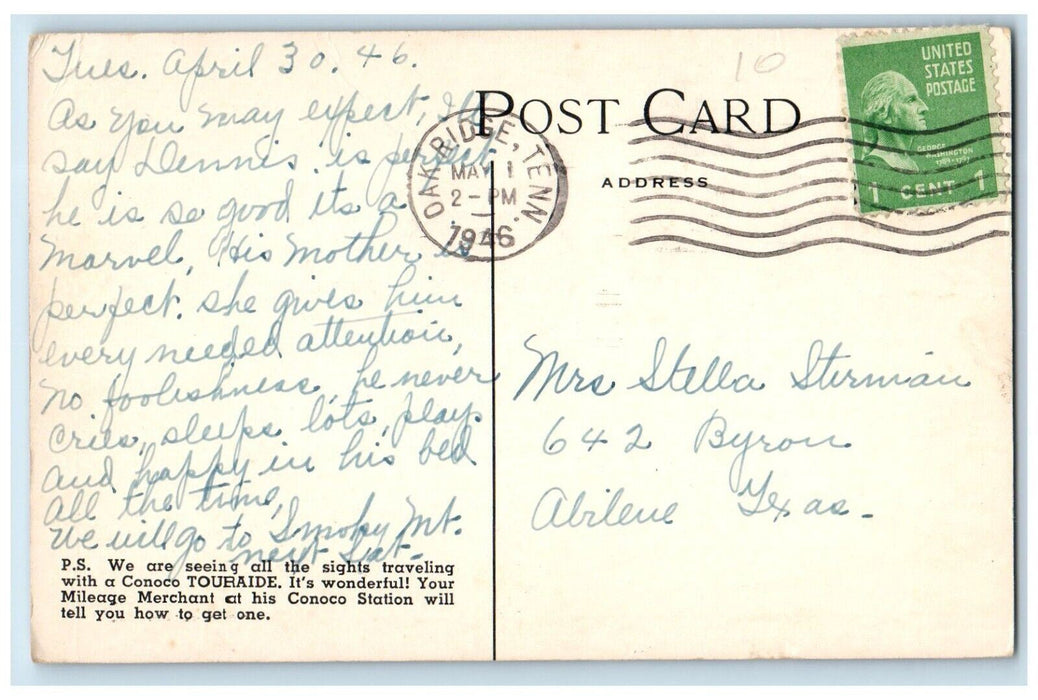 Tues. April 30. 46.
As you may expect, I'll
say Dennis is perfect
he is so good its a
Marvel, His Mother is
perfect. she gives him
every needed attention,
No foolishness, he never
cries, sleeps lots, plays
and happy in his bed
all the time,
We will go to Smoky Mt.
next Sat-
P.S. We are seeing all the sights traveling
with a Conoco TOURAIDE. It's wonderful! Your
Mileage Merchant at his Conoco Station will
tell you how to get one.
10
POST CARD
ADDRESS
OAK RIDGE, TENN.
MAY 1
2-PM
1946
UNITED
STATES
POSTAGE
GEORGE
WASHINGTON
1789-1797
1 CENT 1
Mrs Stella Sterman
642 Byron
Abilene Texas-